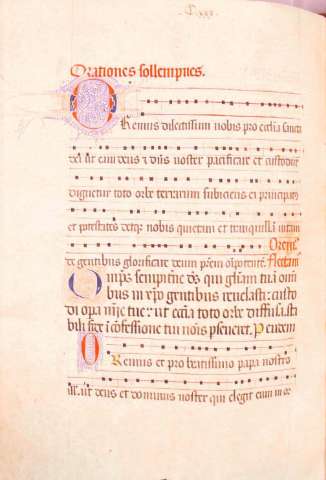 Orationes sollempnes.
Oremus dilectissimi nobis pro ecclia sancta
dei. ut eam deus et dns noster pacificare et custodire
dignetur toto orbe terrarum subiciens ei principatus
et potestates detqz nobis quietam et tranquillam uitam
Oremus.
degentibus glorificare deum prem omnipotentem. Flectamus
Omps sempiterne ds qui gliam tuam omni
bus in xpo gentibus reuelasti: custo
di opa mie tue: ut ecclia toto orbe diffusa. sta
bili fide i confessione tui nois pseueret. P eundem
Oremus et pro beatissimo papa nostro
ill. ut deus et dominus noster qui elegit eum in or